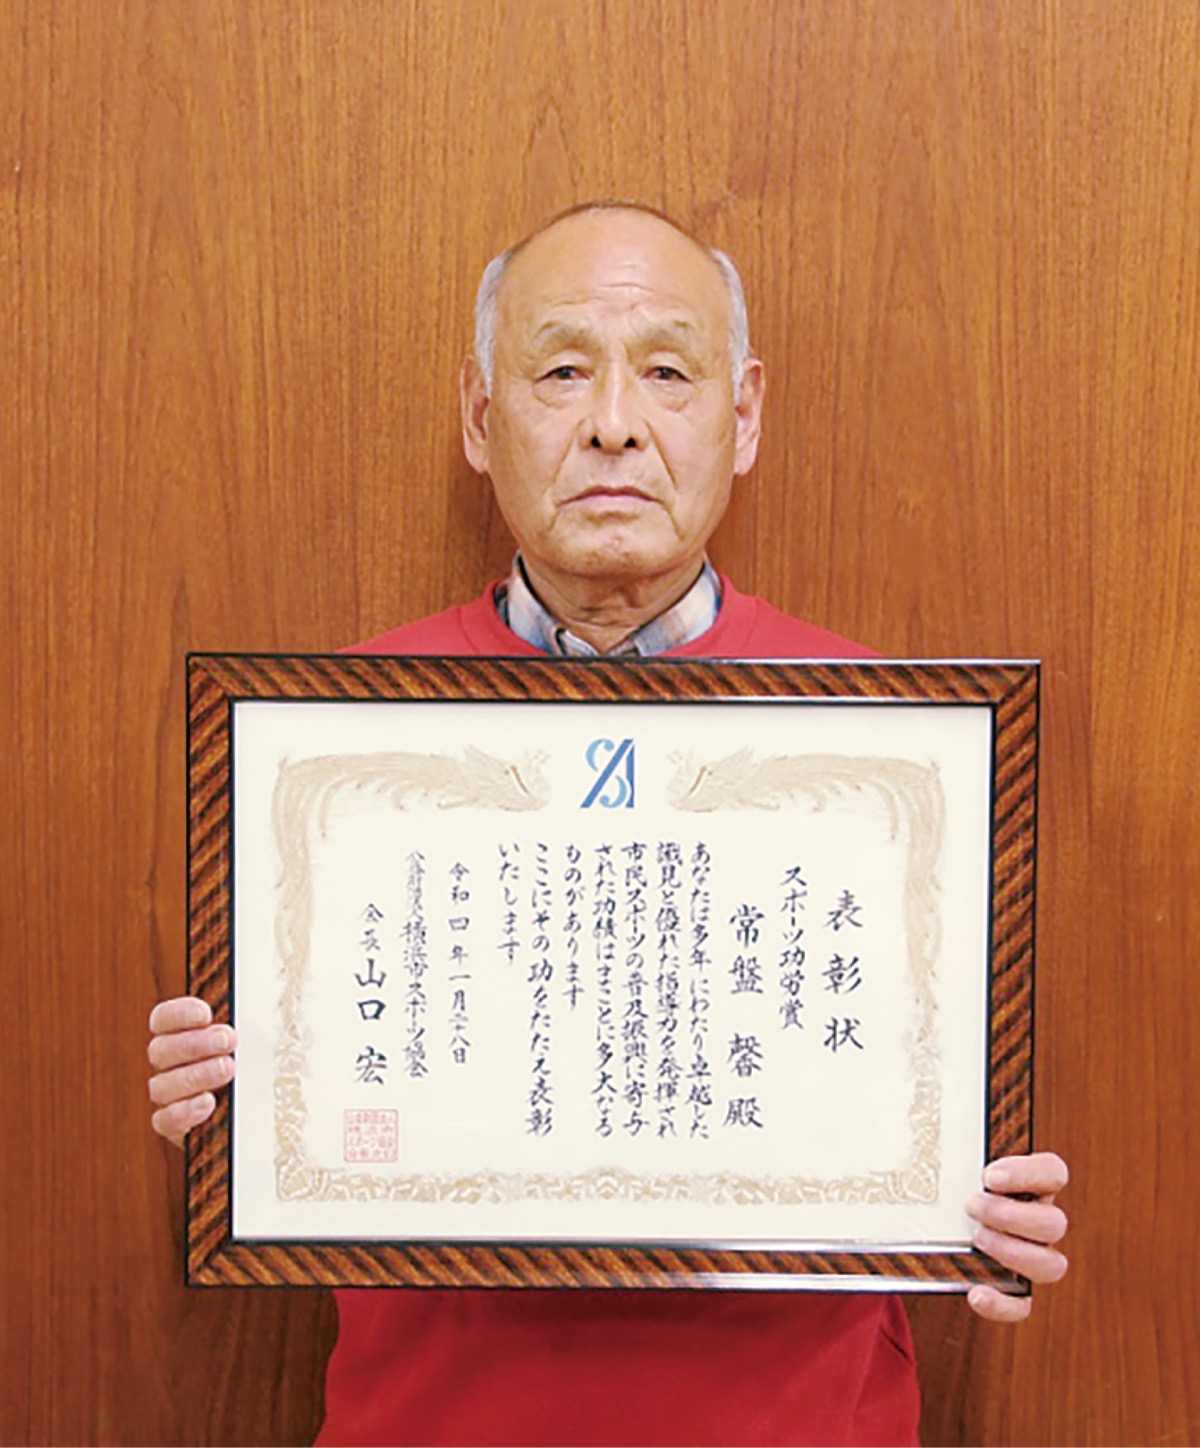 表彰状
スポーツ功労賞
常盤 馨 殿
あなたは多年にわたり卓越した
識見と優れた指導力を発揮され
市民スポーツの普及振興に寄与
された功績はまことに多大なる
ものがあります
ここにその功をたたえ表彰
いたします
令和四年一月二十八日
公益財団法人横浜市スポーツ協会
会長 山口 宏